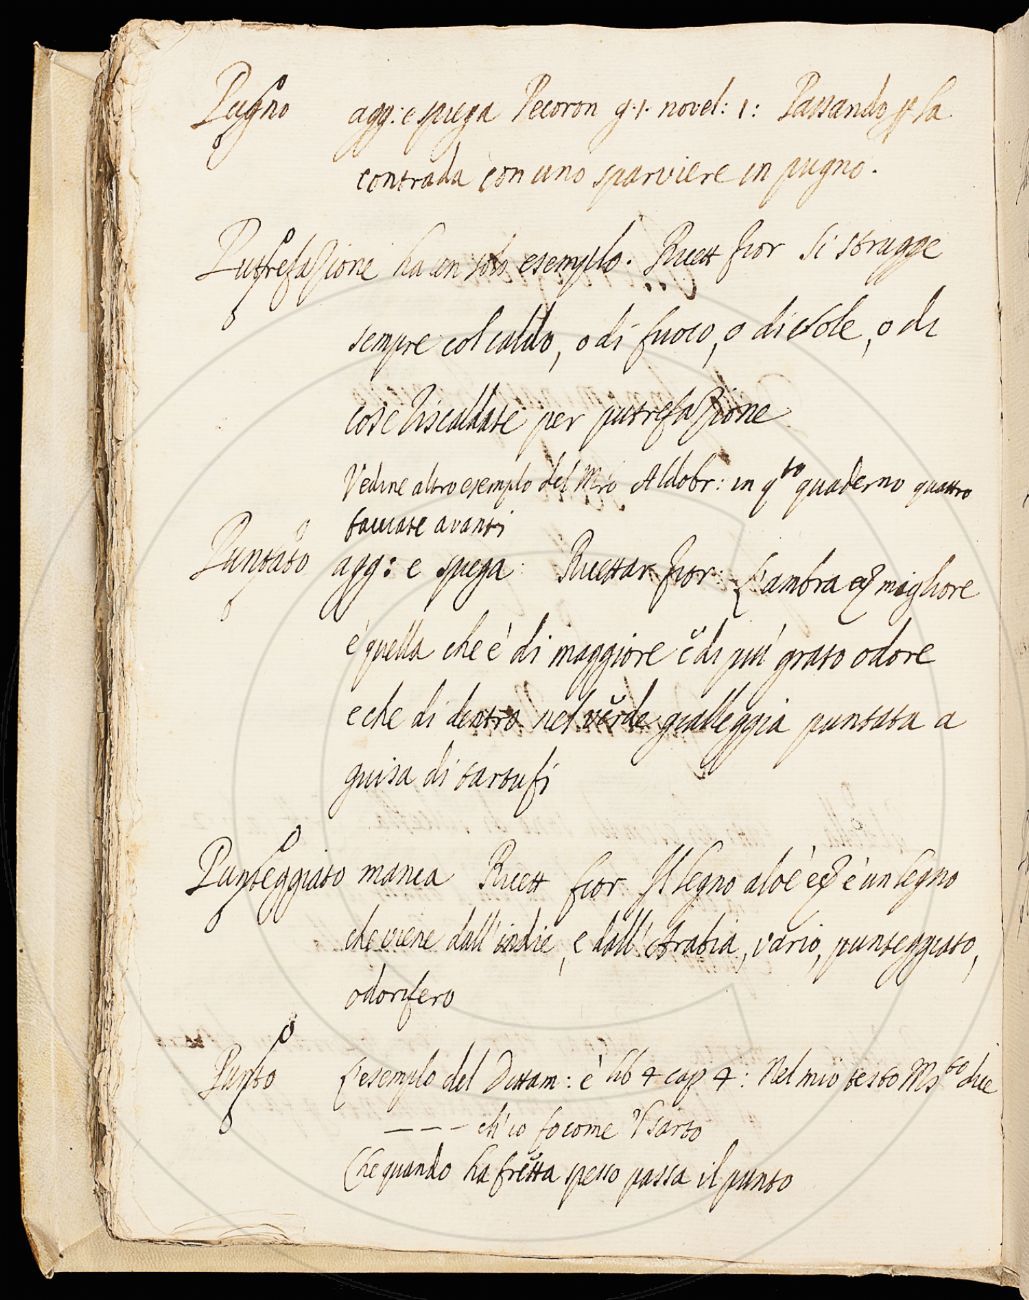 Pugno agg: e spiega Pecoron g. 1. novel: 1: Passando p la
contrada con uno sparviere in pugno.
Putrefazione ha un solo esempio. Ricett Fior Si strugge
sempre col caldo, o di fuoco, o di sole, o di
cose riscaldate per putrefazione
Vedine altro esempio del Mro Aldobr: in qto quaderno quattro
facciate avanti
Puntato agg: e spiega: Ricettar fior: L'ambra migliore
è quella che è di maggiore e di più grato odore
e che di dentro nel verde gialleggia puntata a
guisa di tartufi
Punteggiato manca Ricett fior Il legno aloè è un legno
che viene dall'indie, e dall'Arabia, vario, punteggiato,
odorifero
Punto L'esempio del Dittam: è lib 4 cap 4: Nel mio testo Ms.to dice
– – – ch'io fo come 'l sarto
Che quando ha fretta spesso passa il punto